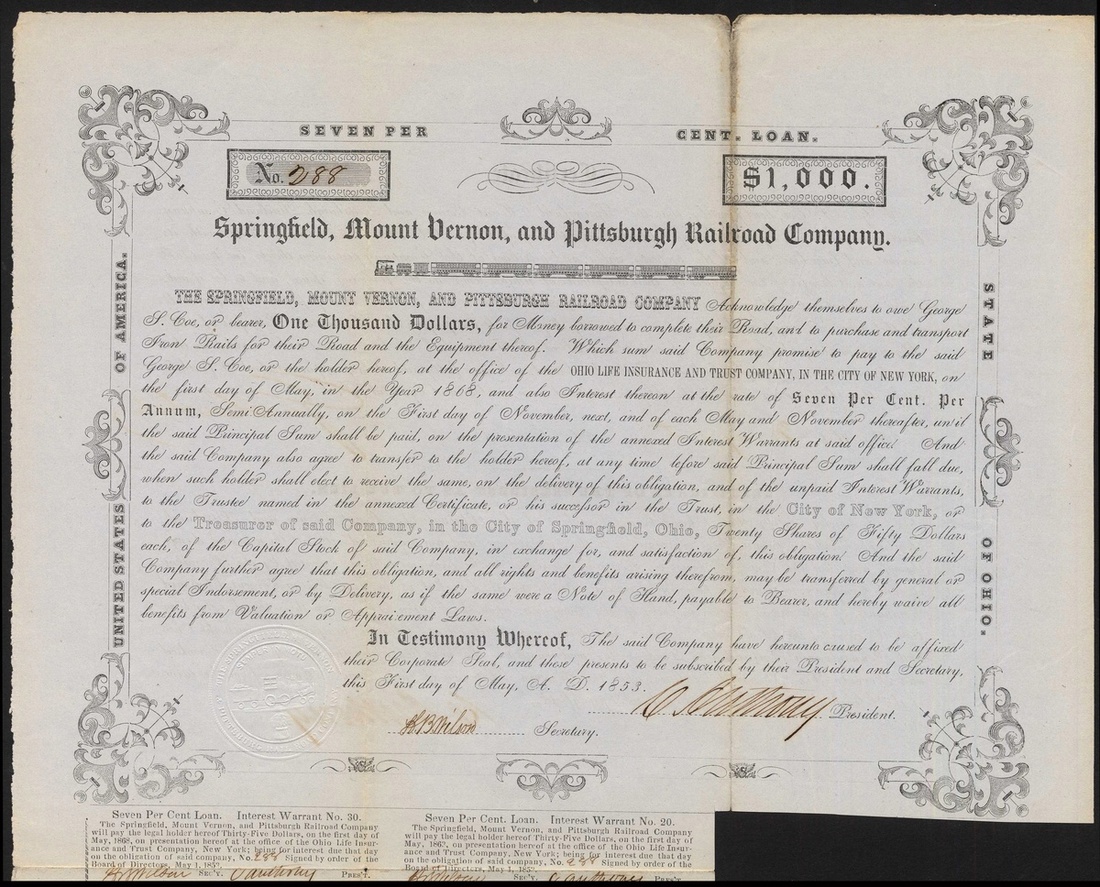 SEVEN PER CENT. LOAN.
No. 288
$1,000.
Springfield, Mount Vernon, and Pittsburgh Railroad Company.
UNITED STATES OF AMERICA.
STATE OF OHIO.
THE SPRINGFIELD, MOUNT VERNON, AND PITTSBURGH RAILROAD COMPANY Acknowledge themselves to owe George
S. Coe, or bearer, One Thousand Dollars, for Money borrowed to complete their Road, and to purchase and transport
Iron Rails for their Road and the Equipment thereof. Which sum said Company promise to pay to the said
George S. Coe, or the holder hereof, at the office of the OHIO LIFE INSURANCE AND TRUST COMPANY, IN THE CITY OF NEW YORK, on
the first day of May, in the Year 1868, and also Interest thereon at the rate of Seven Per Cent. Per
Annum, Semi Annually, on the First day of November, next, and of each May and November thereafter, un'il
the said Principal Sum shall be paid, on the presentation of the annexed Interest Warrants at said office. And
the said Company also agree to transfer to the holder hereof, at any time before said Principal Sum shall fall due,
when such holder shall elect to receive the same, on the delivery of this obligation, and of the unpaid Interest Warrants,
to the Trustee named in the annexed Certificate, or his successor in the Trust, in the City of New York, or
to the Treasurer of said Company, in the City of Springfield, Ohio, Twenty Shares of Fifty Dollars
each, of the Capital Stock of said Company, in exchange for, and satisfaction of, this obligation. And the said
Company further agree that this obligation, and all rights and benefits arising therefrom, may be transferred by general or
special Indorsement, or by Delivery, as if the same were a Note of Hand, payable to Bearer, and hereby waive all
benefits from Valuation or Appraisement Laws.
In Testimony Whereof, The said Company have hereunto caused to be affixed
their Corporate Seal, and those presents to be subscribed by their President and Secretary,
this First day of May, A. D. 1853.
C Anthony President.
H. B. Wilson Secretary.
Seven Per Cent Loan. Interest Warrant No. 30.
The Springfield, Mount Vernon, and Pittsburgh Railroad Company
will pay the legal holder hereof Thirty-Five Dollars, on the first day of
May, 1868, on presentation hereof at the office of the Ohio Life Insur-
ance and Trust Company, New York; being for interest due that day
on the obligation of said company, No. 288 Signed by order of the
Board of Directors, May 1, 185
H B Wilson SEC'Y. C Anthony PRES'T.
Seven Per Cent. Loan. Interest Warrant No. 20.
The Springfield, Mount Vernon, and Pittsburgh Railroad Company
will pay the legal holder hereof Thirty-Five Dollars, on the first day of
May, 186 , on presentation hereof at the office of the Ohio Life Insur-
ance and Trust Company, New York; being for interest due that day
on the obligation of said company, No. 288 Signed by order of the
Board of Directors, May 1, 185
H B Wilson SEC'Y. C Anthony PRES'T.